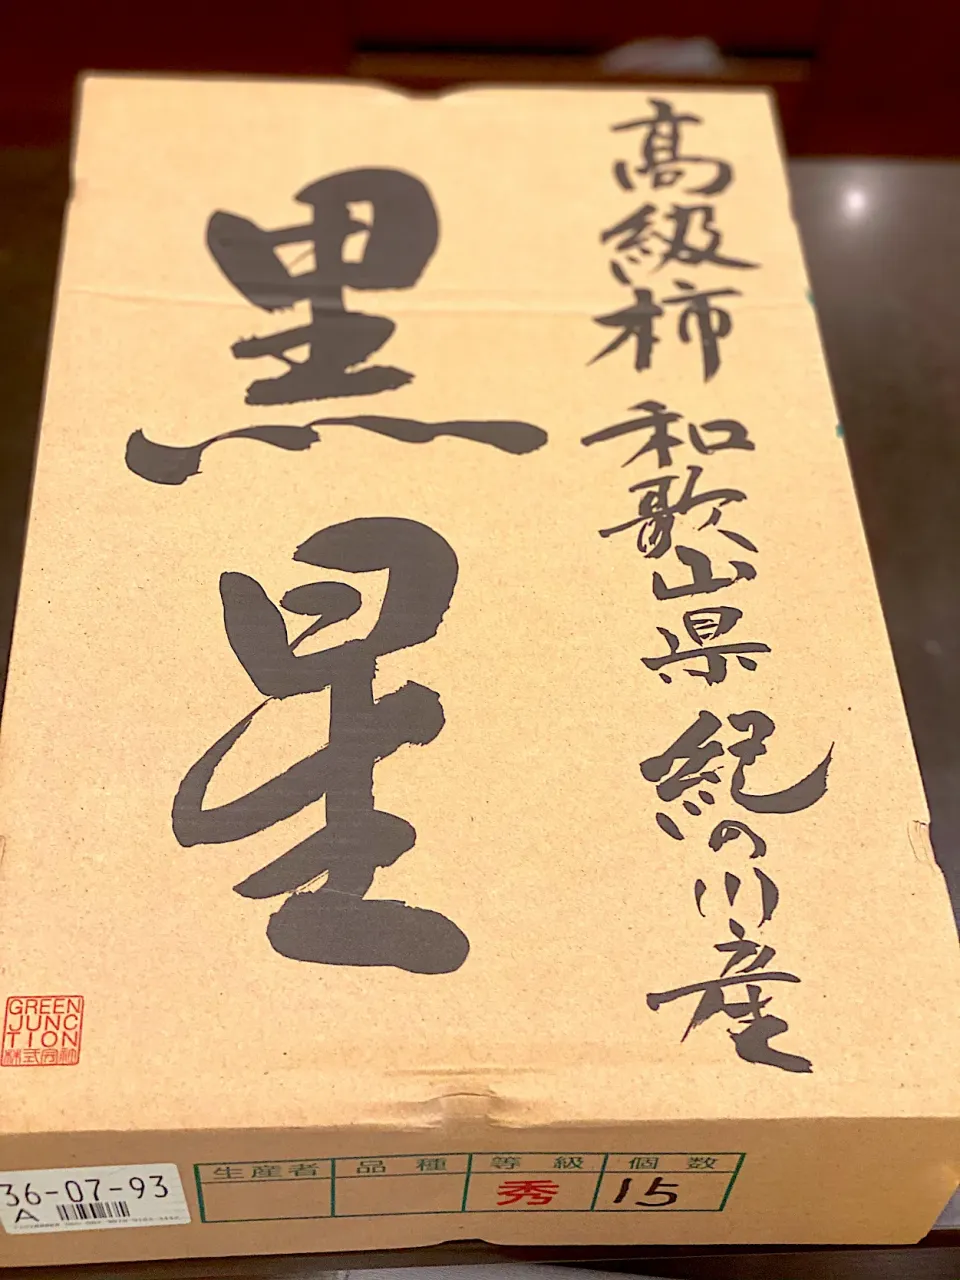 高級柿 和歌山県 紀の川産
黒星
GREEN
JUNC
TION
株式会社
36-07-93
A
生産者 品種 等級 個数
秀 15